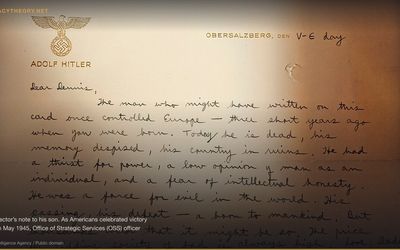 ACYTHEORY.NET
ADOLF HITLER
OBERSALZBERG, DEN V-E day
Dear Dennis,
The man who might have written on this
card once controlled Europe — three short years ago
when you were born. Today he is dead, his
memory despised, his country in ruins. He had
a thirst for power, a low opinion of man as an
individual, and a fear of intellectual honesty.
He was a force for evil in the world. His
passing, his defeat — a boon to mankind. But
that it might be so. The price
ector's note to his son. As Americans celebrated victory
May 1945, Office of Strategic Services (OSS) officer
elligence Agency / Public domain